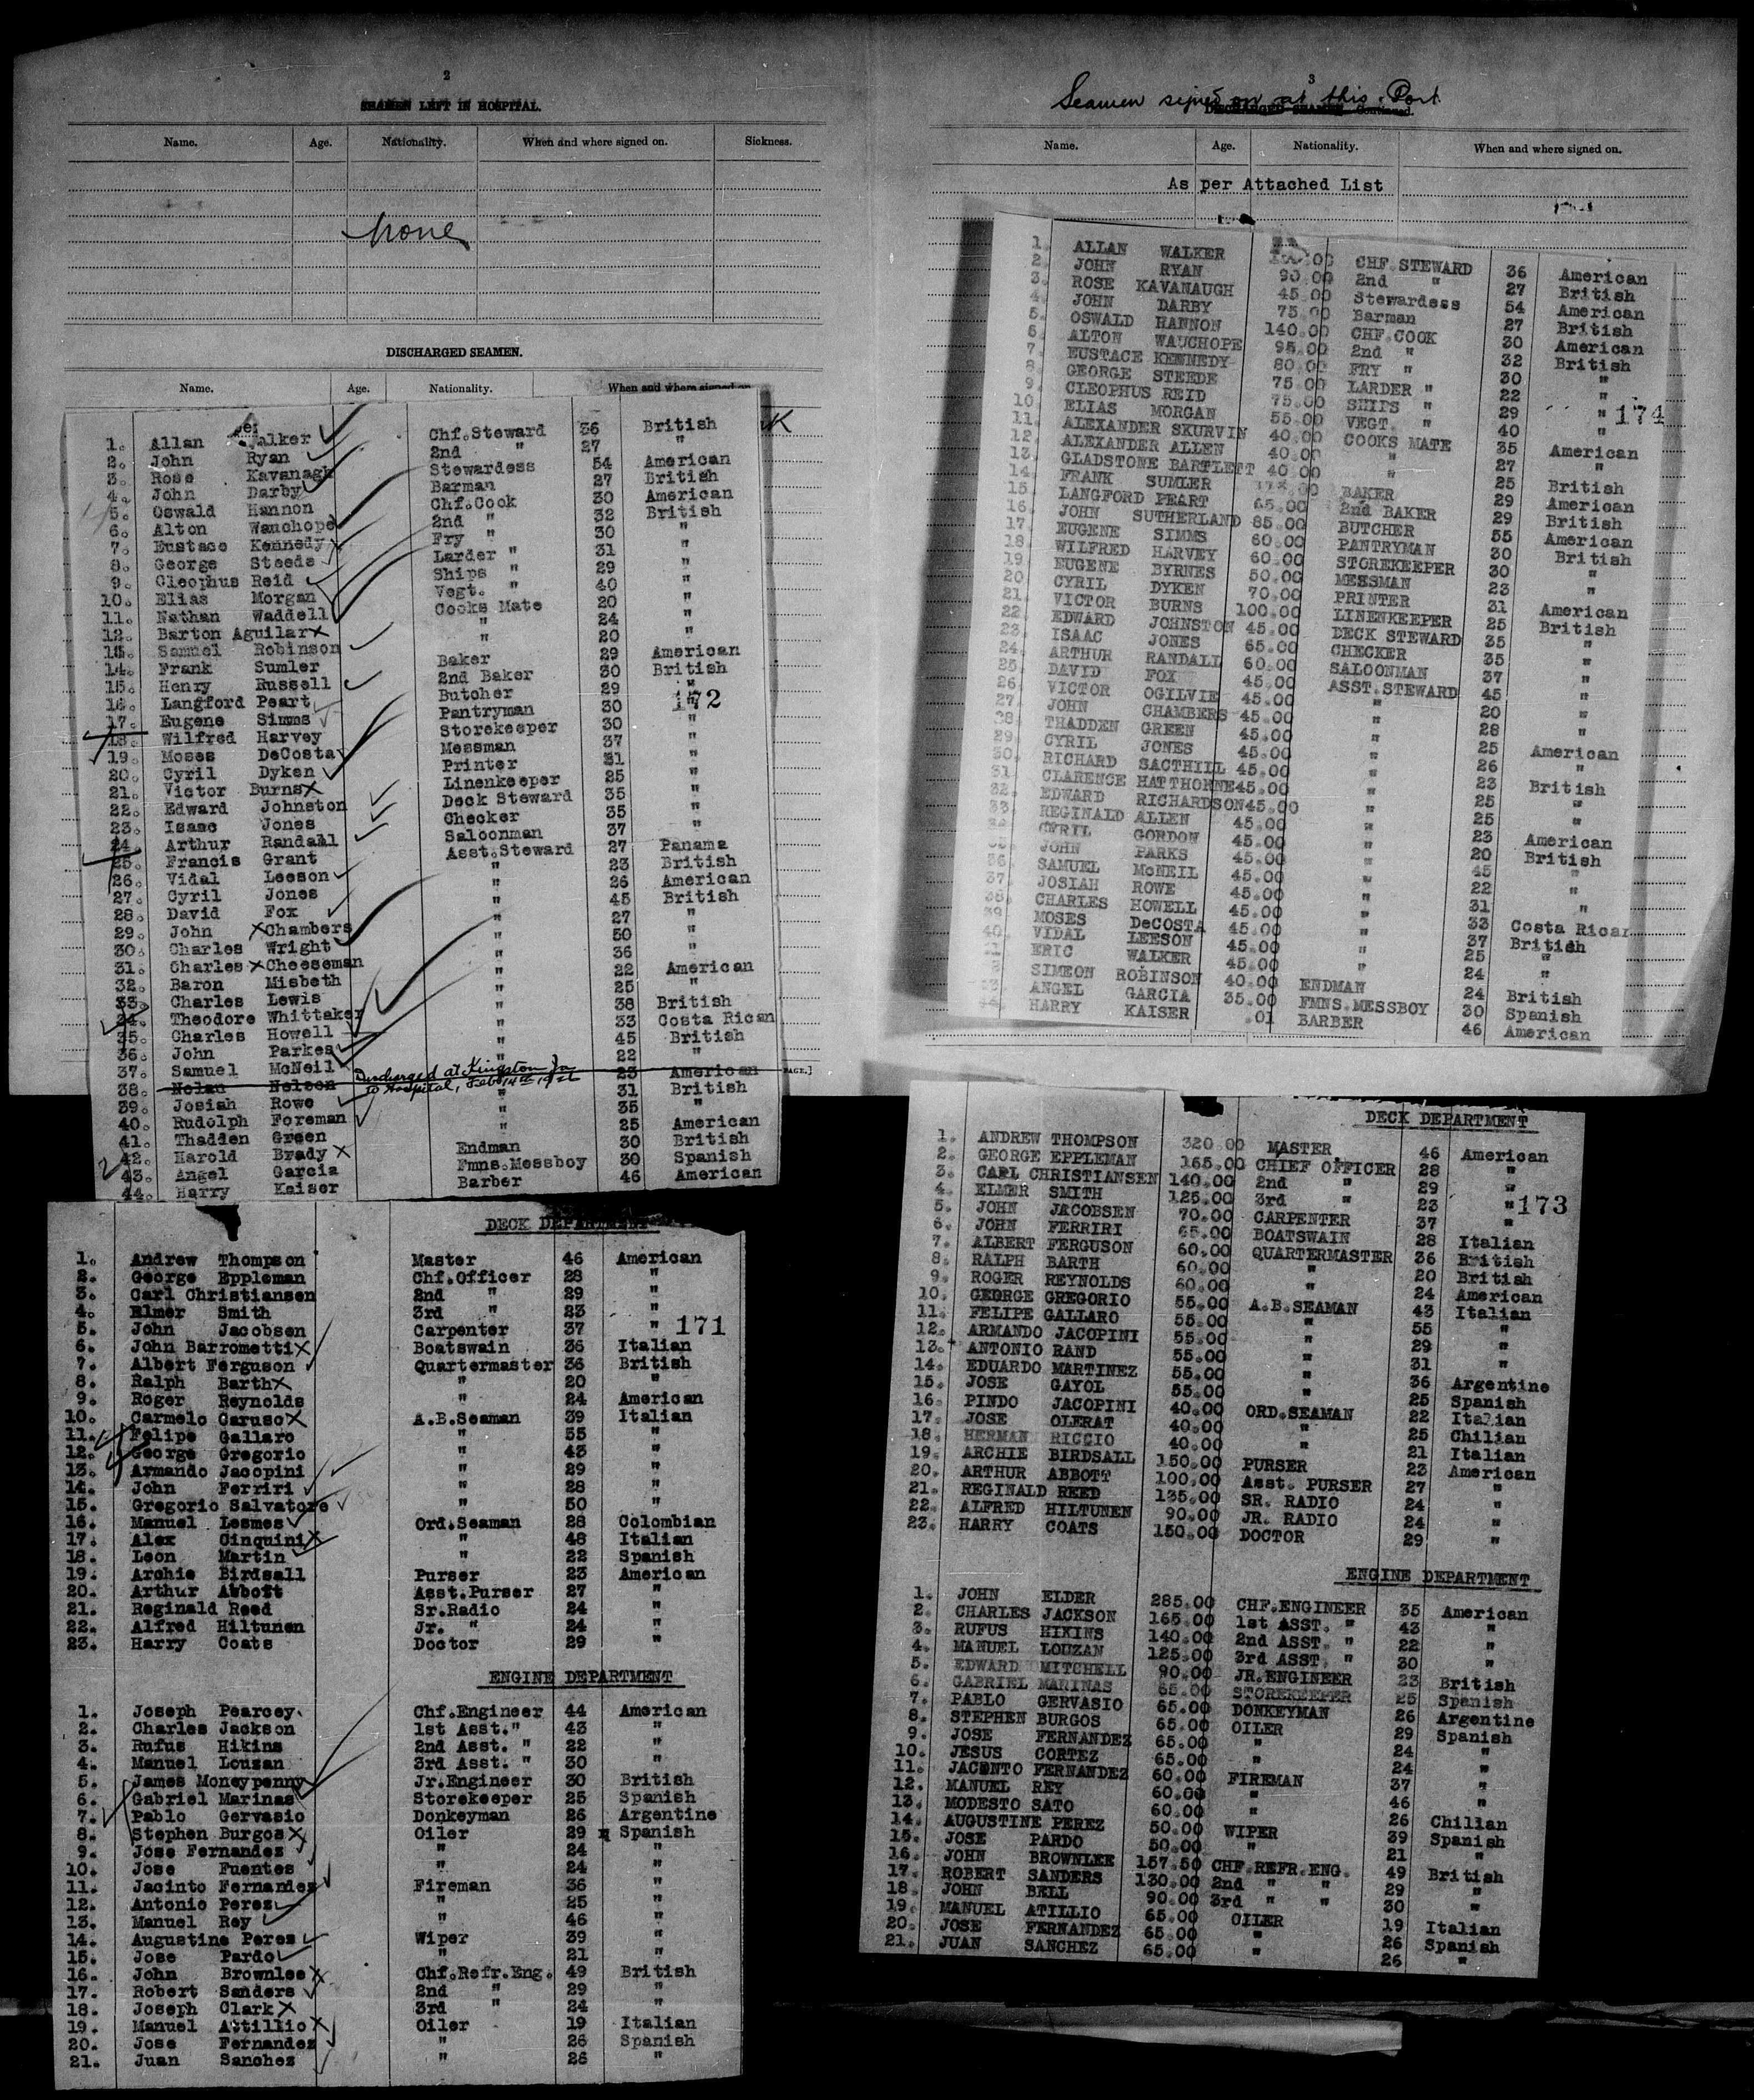 2
SEAMEN LEFT IN HOSPITAL.
Name. Age. Nationality. When and where signed on. Sickness.
None
DISCHARGED SEAMEN.
Name. Age. Nationality. When and where signed on
1. Allan Walker Chf.Steward 36 British
2. John Ryan 2nd " 27 "
3. Rose Kavanagh Stewardess 54 American
4. John Darby Barman 27 British
5. Oswald Hannon Chf.Cook 30 American
6. Alton Wauchope 2nd " 32 British
7. Eustace Kennedy Fry " 30 "
8. George Steede Larder " 31 "
9. Cleophus Reid Ships " 29 "
10. Elias Morgan Vegt. " 40 "
11. Nathan Waddell Cooks Mate 20 "
12. Barton Aguilar " 24 "
13. Samuel Robinson " 20 "
14. Frank Sumler Baker 29 American
15. Henry Russell 2nd Baker 30 British
16. Langford Peart Butcher 29 "
172
17. Eugene Simms Pantryman 30 "
18. Wilfred Harvey Storekeeper 30 "
19. Moses DeCosta Messman 37 "
20. Cyril Dyken Printer 31 "
21. Victor Burns Linenkeeper 25 "
22. Edward Johnston Deck Steward 35 "
23. Isaac Jones Checker 35 "
24. Arthur Randall Saloonman 37 "
25. Francis Grant Asst.Steward 27 Panama
26. Vidal Leeson " 23 British
27. Cyril Jones " 26 American
28. David Fox " 45 British
29. John Chambers " 27 "
30. Charles Wright " 50 "
31. Charles Cheeseman " 36 "
32. Baron Misbeth " 22 American
33. Charles Lewis " 25 "
34. Theodore Whittaker " 38 British
35. Charles Howell " 33 Costa Rican
36. John Parkes " 45 British
37. Samuel McNeil " 22 "
38. Nolan Nelson Discharged at Kingston Ja 23 American
to Hospital, Feb 14th
39. Josiah Rowe " 31 British
40. Rudolph Foreman " 35 "
41. Thadden Green " 25 American
42. Harold Brady Endman 30 British
43. Angel Garcia Fmns.Messboy 30 Spanish
44. Harry Kaiser Barber 46 American
DECK DEPARTMENT
1. Andrew Thompson Master 46 American
2. George Eppleman Chf.Officer 28 "
3. Carl Christiansen 2nd " 29 "
4. Elmer Smith 3rd " 23 "
5. John Jacobsen Carpenter 37 "
171
6. John Barrometti Boatswain 36 Italian
7. Albert Ferguson Quartermaster 36 British
8. Ralph Barth " 20 "
9. Roger Reynolds " 24 American
10. Carmelo Caruso A.B.Seaman 39 Italian
11. Felipe Gallaro " 55 "
12. George Gregorio " 43 "
13. Armando Jacopini " 29 "
14. John Ferriri " 28 "
15. Gregorio Salvatore " 50 "
16. Manuel Lesmes Ord.Seaman 28 Colombian
17. Alex Cinquini " 48 Italian
18. Leon Martin " 22 Spanish
19. Archie Birdsall Purser 23 American
20. Arthur Abbott Asst.Purser 27 "
21. Reginald Reed Sr.Radio 24 "
22. Alfred Hiltunen Jr. " 24 "
23. Harry Coats Doctor 29 "
ENGINE DEPARTMENT
1. Joseph Pearcey Chf.Engineer 44 American
2. Charles Jackson 1st Asst." 43 "
3. Rufus Hikins 2nd Asst. " 22 "
4. Manuel Louzan 3rd Asst. " 30 "
5. James Moneypenny Jr.Engineer 30 British
6. Gabriel Marinas Storekeeper 25 Spanish
7. Pablo Gervasio Donkeyman 26 Argentine
8. Stephen Burgos Oiler 29 Spanish
9. Jose Fernandez " 24 "
10. Jose Fuentes " 24 "
11. Jacinto Fernandez Fireman 36 "
12. Antonio Perez " 25 "
13. Manuel Rey " 46 "
14. Augustine Perez Wiper 39 "
15. Jose Pardo " 21 "
16. John Brownlee Chf.Refr.Eng. 49 British
17. Robert Sanders 2nd " 29 "
18. Joseph Clark 3rd " 24 "
19. Manuel Attillio Oiler 19 Italian
20. Jose Fernandez " 26 Spanish
21. Juan Sanchez " 26 "
3
Seamen signed on at this Port
DISCHARGED SEAMEN Continued.
Name. Age. Nationality. When and where signed on.
As per Attached List
1. ALLAN WALKER CHF.STEWARD 36 American
2. JOHN RYAN 90.00 2nd " 27 British
3. ROSE KAVANAUGH 45.00 Stewardess 54 American
4. JOHN DARBY 75.00 Barman 27 British
5. OSWALD HANNON 140.00 CHF.COOK 30 American
6. ALTON WAUCHOPE 95.00 2nd " 32 British
7. EUSTACE KENNEDY 80.00 FRY " 30 "
8. GEORGE STEEDE 75.00 LARDER " 22 "
9. CLEOPHUS REID 75.00 SHIPS " 29 "
174
10. ELIAS MORGAN 55.00 VEGT. " 40 "
11. ALEXANDER SKURVIN 40.00 COOKS MATE 35 American
12. ALEXANDER ALLEN 40.00 " 27 "
13. GLADSTONE BARTLETT 40.00 " 25 British
14. FRANK SUMLER BAKER 29 American
15. LANGFORD PEART 65.00 2nd BAKER 29 British
16. JOHN SUTHERLAND 85.00 BUTCHER 55 American
17. EUGENE SIMMS 60.00 PANTRYMAN 30 British
18. WILFRED HARVEY 60.00 STOREKEEPER 30 "
19. EUGENE BYRNES 50.00 MESSMAN 23 "
20. CYRIL DYKEN 70.00 PRINTER 31 American
21. VICTOR BURNS 100.00 LINENKEEPER 25 British
22. EDWARD JOHNSTON 45.00 DECK STEWARD 35 "
23. ISAAC JONES 65.00 CHECKER 35 "
24. ARTHUR RANDALL 60.00 SALOONMAN 37 "
25. DAVID FOX 45.00 ASST.STEWARD 45 "
26. VICTOR OGILVIE 45.00 " 20 "
27. JOHN CHAMBERS 45.00 " 28 "
28. THADDEN GREEN 45.00 " 25 American
29. CYRIL JONES 45.00 " 26 "
30. RICHARD SACTHILL 45.00 " 23 British
31. CLARENCE HATTHORNE 45.00 " 25 "
32. EDWARD RICHARDSON 45.00 " 25 "
33. REGINALD ALLEN 45.00 " 23 American
CYRIL GORDON 45.00 " 20 British
JOHN PARKS 45.00 " 45 "
36. SAMUEL McNEIL 45.00 " 22 "
37. JOSIAH ROWE 45.00 " 31 "
38. CHARLES HOWELL 45.00 " 33 Costa Rican
39. MOSES DeCOSTA 45.00 " 37 British
40. VIDAL LEESON 45.00 " 25 "
ERIC WALKER 45.00 " 24 "
SIMEON ROBINSON 40.00 ENDMAN 24 British
ANGEL GARCIA 35.00 FMNS.MESSBOY 30 Spanish
44. HARRY KAISER .01 BARBER 46 American
DECK DEPARTMENT
1. ANDREW THOMPSON 320.00 MASTER 46 American
2. GEORGE EPPLEMAN 165.00 CHIEF OFFICER 28 "
3. CARL CHRISTIANSEN 140.00 2nd " 29 "
4. ELMER SMITH 125.00 3rd " 23 "
173
5. JOHN JACOBSEN 70.00 CARPENTER 37 "
6. JOHN FERRIRI 65.00 BOATSWAIN 28 Italian
7. ALBERT FERGUSON 60.00 QUARTERMASTER 36 British
8. RALPH BARTH 60.00 " 20 British
9. ROGER REYNOLDS 60.00 " 24 American
10. GEORGE GREGORIO 55.00 A.B.SEAMAN 43 Italian
11. FELIPE GALLARO 55.00 " 55 "
12. ARMANDO JACOPINI 55.00 " 29 "
13. ANTONIO RAND 55.00 " 31 "
14. EDUARDO MARTINEZ 55.00 " 36 Argentine
15. JOSE GAYOL 55.00 " 25 Spanish
16. PINDO JACOPINI 40.00 ORD.SEAMAN 22 Italian
17. JOSE OLERAT 40.00 " 25 Chilian
18. HERMAN RICCIO 40.00 " 21 Italian
19. ARCHIE BIRDSALL 150.00 PURSER 23 American
20. ARTHUR ABBOTT 100.00 Asst. PURSER 27 "
21. REGINALD REED 135.00 SR. RADIO 24 "
22. ALFRED HILTUNEN 90.00 JR. RADIO 24 "
23. HARRY COATS 150.00 DOCTOR 29 "
ENGINE DEPARTMENT
1. JOHN ELDER 285.00 CHF.ENGINEER 35 American
2. CHARLES JACKSON 165.00 1st ASST. " 43 "
3. RUFUS HIKINS 140.00 2nd ASST. " 22 "
4. MANUEL LOUZAN 125.00 3rd ASST. " 30 "
5. EDWARD MITCHELL 90.00 JR.ENGINEER 23 British
6. GABRIEL MARINAS 65.00 STOREKEEPER 25 Spanish
7. PABLO GERVASIO 65.00 DONKEYMAN 26 Argentine
8. STEPHEN BURGOS 65.00 OILER 29 Spanish
9. JOSE FERNANDEZ 65.00 " 24 "
10. JESUS CORTEZ 65.00 " 24 "
11. JACONTO FERNANDEZ 60.00 FIREMAN 37 "
12. MANUEL REY 60.00 " 46 "
13. MODESTO SATO 60.00 " 26 Chilian
14. AUGUSTINE PEREZ 50.00 WIPER 39 Spanish
15. JOSE PARDO 50.00 " 21 "
16. JOHN BROWNLEE 157.50 CHF.REFR.ENG. 49 British
17. ROBERT SANDERS 130.00 2nd " " 29 "
18. JOHN BELL 90.00 3rd " " 30 "
19. MANUEL ATILLIO 65.00 OILER 19 Italian
20. JOSE FERNANDEZ 65.00 " 26 Spanish
21. JUAN SANCHEZ 65.00 " 26 "